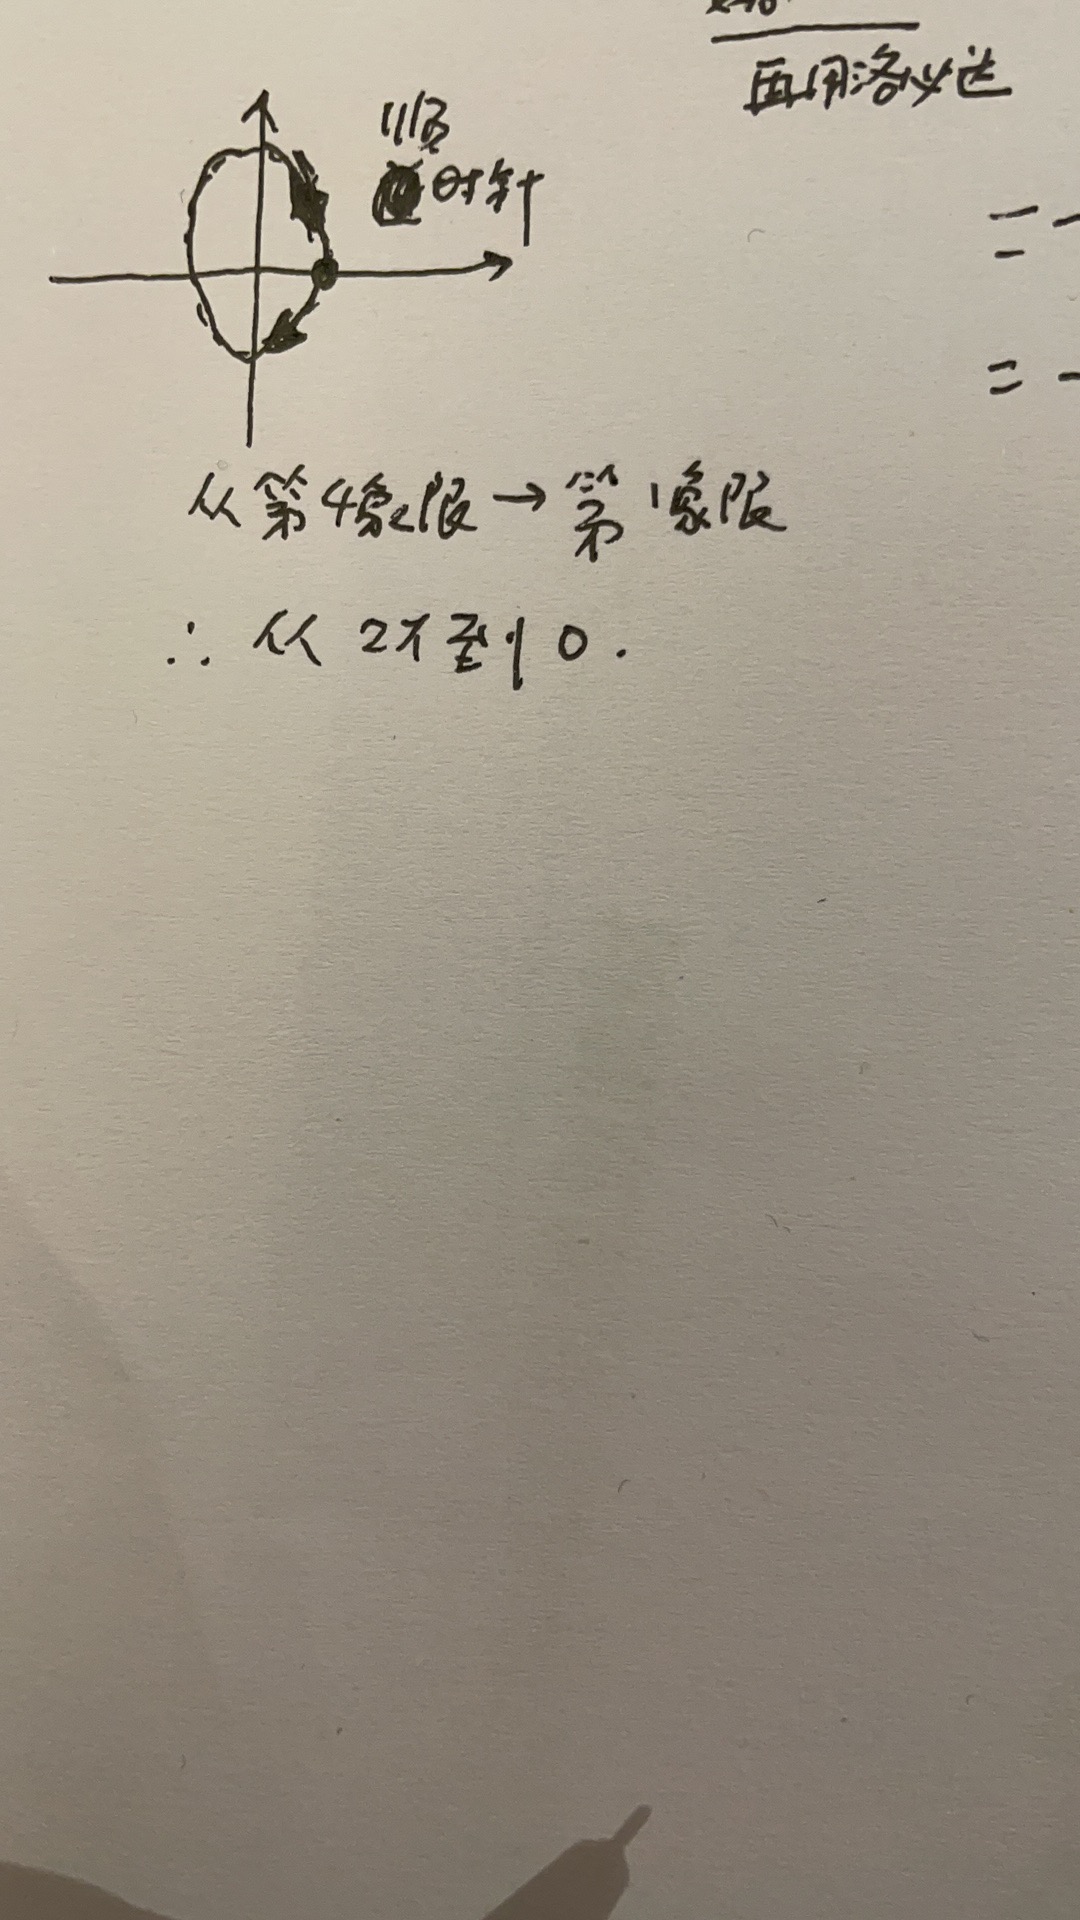 再用洛必达
顺
时针
=
=
从第4象限→第1象限
∴ 从 2π 到 0.